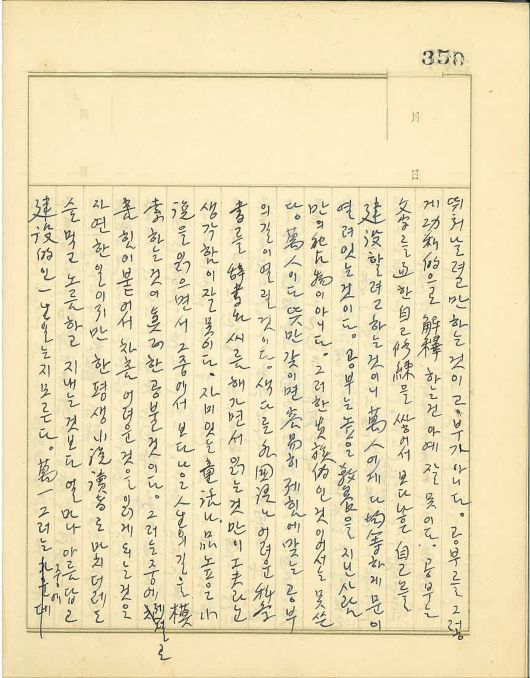 350
月
日
뛰처 날뛸만 하는 것이 공부가 아니다. 공부를 그렇
게 功利的으로 解釋하는 건 아예 잘못이다. 공부는
文字를 通한 自己修練을 쌓어서 보다 나흔 自己를
建設할려고 하는 것이니 萬人에게 다 均等하게 문이
열려 잇는 것이다. 공부는 높은 敎養을 지닌 사람
만의 것이 아니다. 그러한 것이어서는 못쓴
당 萬人이 다 뜻만 같이면 容易히 제힘에 맞는 공부
의 길이 열릴 것이다. 색다른 外國語나 어려운 科學
書를 辭書와 씨름 해가면서 읽는 것만이 工夫라고
생각함이 잘못이다. 자미있는 童話나 品 높은 小
說을 읽으면서 그중에서 보다 나은 人生의 길을 模
索하는 것이 훌륭한 공불 것이다. 그러는 중에 저절로
좀 힘이 붙어서 차츰 어려운 것을 읽게 되는 것은
자연한 일이지만 한평생 小說讀者로 마치더래도
술 먹고 노름하고 지내는 것보다 얼마나 아름답고
建設的인 人生일는지 모른다. 萬一 그러는 중에